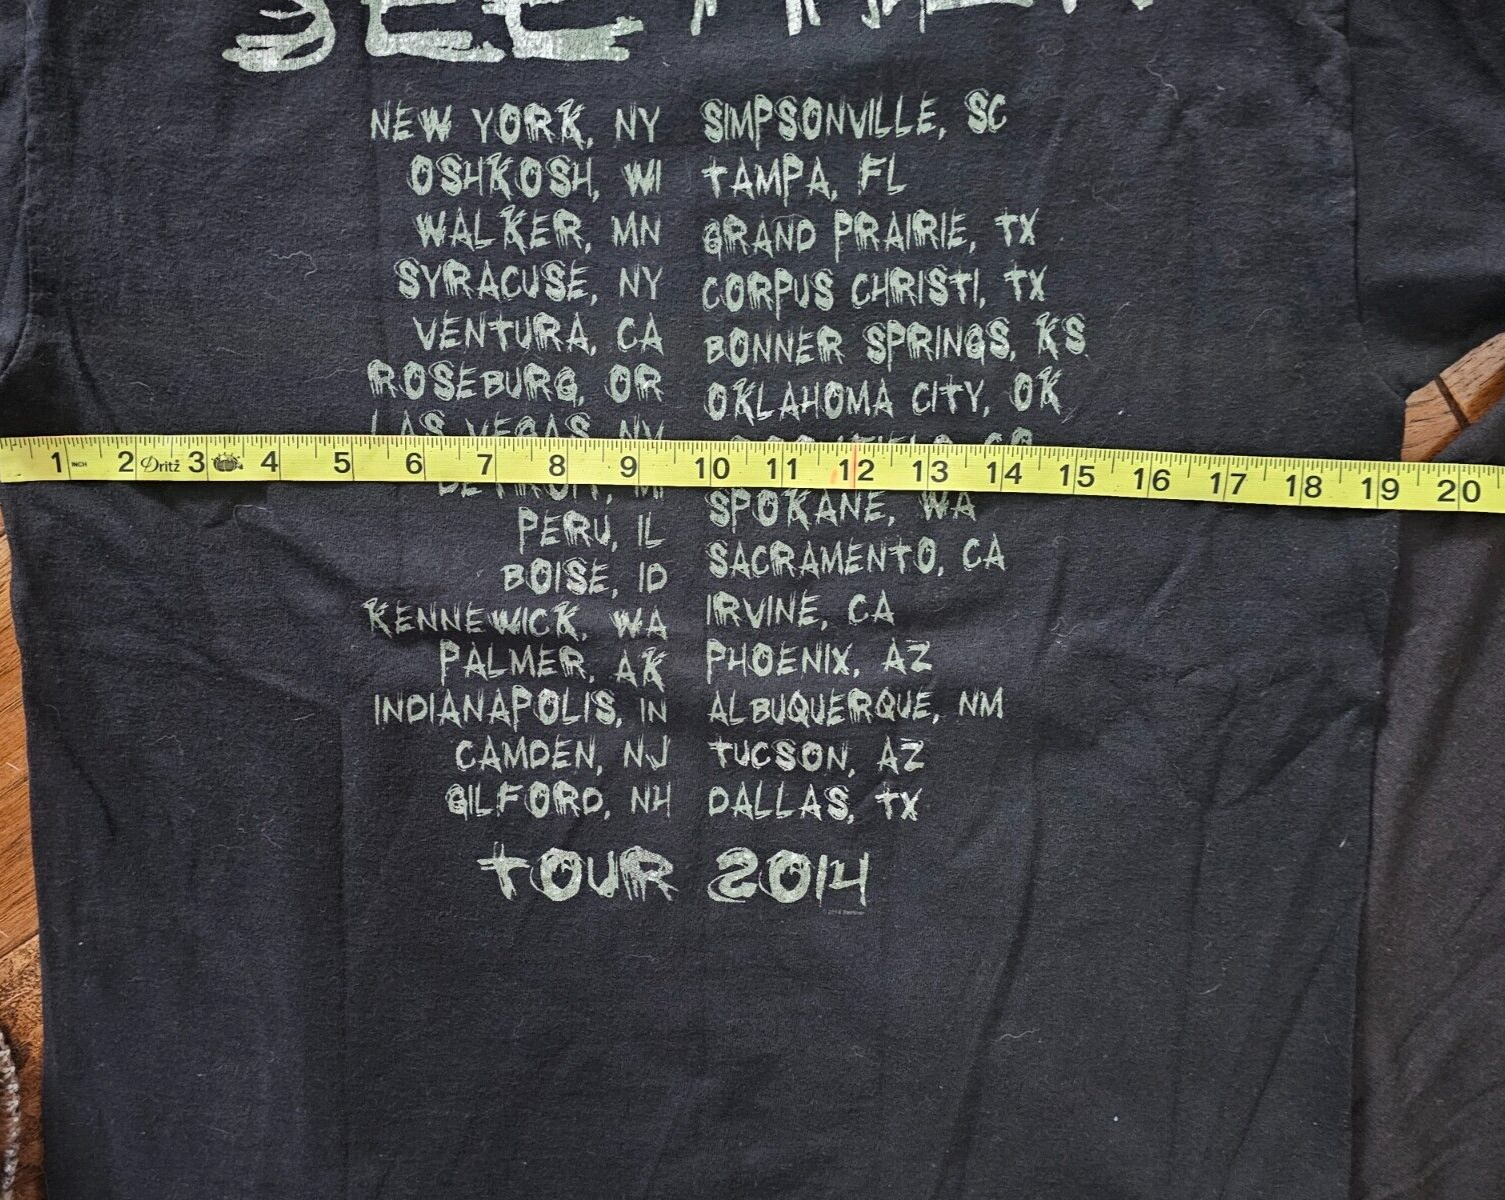 NEW YORK, NY
OSHKOSH, WI
WALKER, MN
SYRACUSE, NY
VENTURA, CA
ROSEBURG, OR
LAS VEGAS, NV
DETROIT, MI
PERU, IL
BOISE, ID
KENNEWICK, WA
PALMER, AK
INDIANAPOLIS, IN
CAMDEN, NJ
GILFORD, NH
SIMPSONVILLE, SC
TAMPA, FL
GRAND PRAIRIE, TX
CORPUS CHRISTI, TX
BONNER SPRINGS, KS
OKLAHOMA CITY, OK
SPOKANE, WA
SACRAMENTO, CA
IRVINE, CA
PHOENIX, AZ
ALBUQUERQUE, NM
TUCSON, AZ
DALLAS, TX
1 INCH 2 Dritz 3 4 5 6 7 8 9 10 11 12 13 14 15 16 17 18 19 20
TOUR 2014